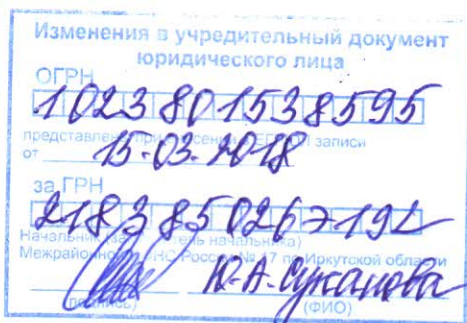 Изменения в учредительный документ
юридического лица
ОГРН
1023801538595
представлен при внесении в ЕГРЮЛ записи
от 15.03.2018
за ГРН
Начальник (заместитель начальника)
Межрайонной ИФНС России № 17 по Иркутской области
Ю.А. Суханова
(подпись) (ФИО)